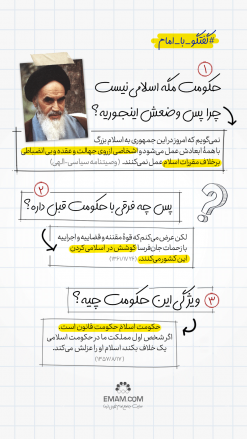 #گفتگو_با_امام
۱
حکومت مگه اسلامی نیست
چرا پس وضعش اینجوریه؟
نمی‌گویم که امروز در این جمهوری به اسلام بزرگ
با همۀ ابعادش عمل می‌شود و اشخاصی از روی جهالت و عقده و بی‌انضباطی
برخلاف مقررات اسلام عمل نمی‌کنند. (وصیتنامه سیاسی-الهی)
۲
پس چه فرقی با حکومت قبل داره؟
لکن عرض می‌کنم که قوۀ مقننه و قضاییه و اجراییه
با زحمات جان‌فرسا کوشش در اسلامی‌کردن
این کشور می‌کنند.
۳
ویژگی این حکومت چیه؟
حکومت اسلام حکومت قانون است.
اگر شخص اول مملکت ما در حکومت اسلامی
یک خلاف بکند، اسلام او را عزلش می‌کند.
EMAM.COM